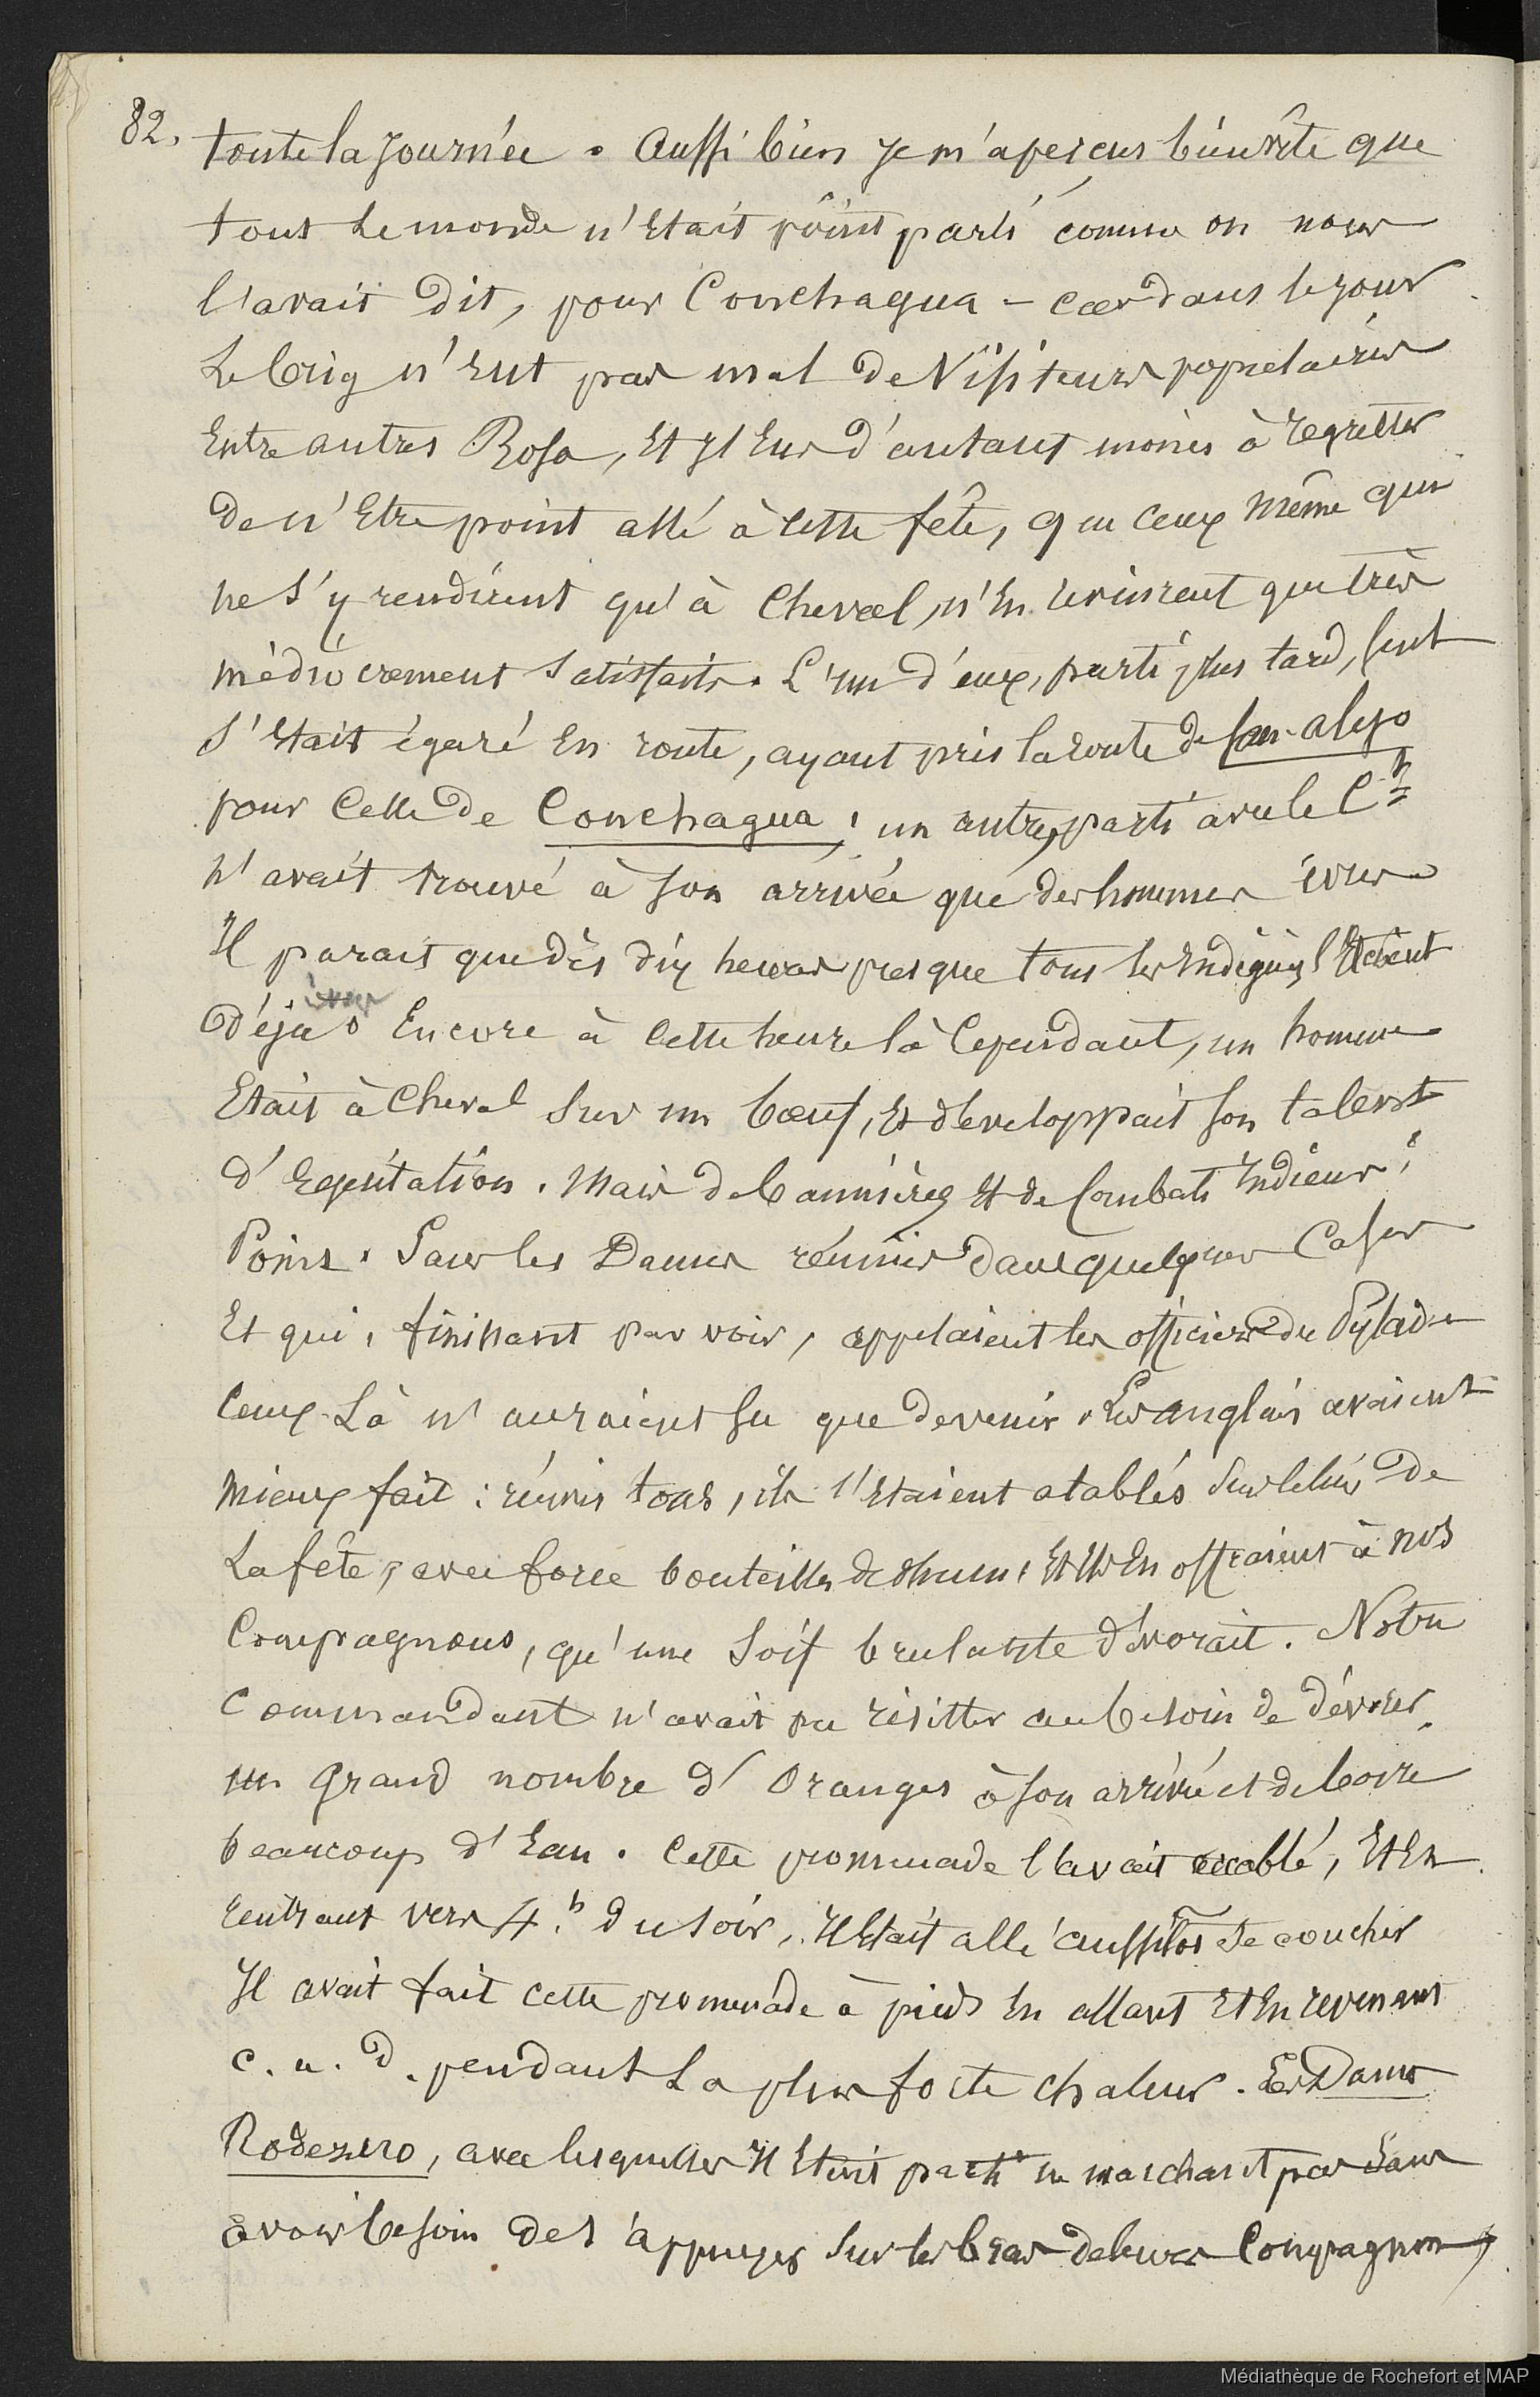 82.
toute la journée. Aussi bien je m'aperçus bien vite que
tout le monde n'Etait point parti comme on nous
l'avait Dit, pour Conchagua - car dans le jour
Le brig n'eut pas mal de Visiteurs
Entre autres Rosa, Et j'eus d'autant moins à regretter
de n'Etre point allé à cette fête, que ceux même qui
ne s'y rendirent qu'à cheval, n'En revinrent que très
médiocrement satisfaits. L'un d'eux, parti plus tard, seul
s'Etait égaré En route, ayant pris la route de San-Alejo
pour Celle de Conchagua; un autre, parti avec le Cn
n'avait trouvé à son arrivée que des hommes ivres
Il parait que dès dix heures presque tous les Indigènes l'Etaient
Déjà. Encore à cette heure là Cependant, un homme
Etait à cheval sur un boeuf, Et développait son talent
d'Equitation. Mais de bannières Et de Combats Indiens;
Point. Sans les Dames réunies dans quelques Cases
Et qui, finissant par voir, appelaient les officiers du Pylade
Ceux-Là n'auraient su que devenir. Les anglais avaient
Mieux fait: réunis tous, ils s'Etaient atablés sur le lieu De
La fête, avec force bouteilles de rhum, Et Ils En offraient à nos
Compagnons, qu'une Soif brulante dévorait. Notre
Commandant n'avait pu résister au besoin de dévorer
un Grand nombre d'Oranges à son arrivée et de boire
beaucoup d'Eau. Cette promenade l'avait accablé, Et En
rentrant vers 4.h du soir, Il Etait allé aussitôt se coucher
Il avait fait cette promenade à pieds En allant Et En revenant
c. a. d. pendant La plus forte chaleur. Les Dames
Rodezno, avec lesquelles Il Etait parti ne marchant pas sans
avoir besoin de s'appuyer sur les bras de leurs Compagnons,
Médiathèque de Rochefort et MAP